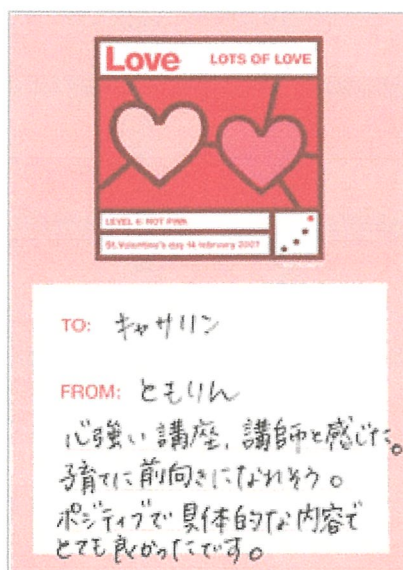 Love LOTS OF LOVE
LEVEL 4: HOT PINK
St.Valentine's day 14 february 2007
TO: キャサリン
FROM: ともりん
心強い講座、講師と感じた。
子育てに前向きになれそう。
ポジティブで具体的な内容で
とても良かったです。